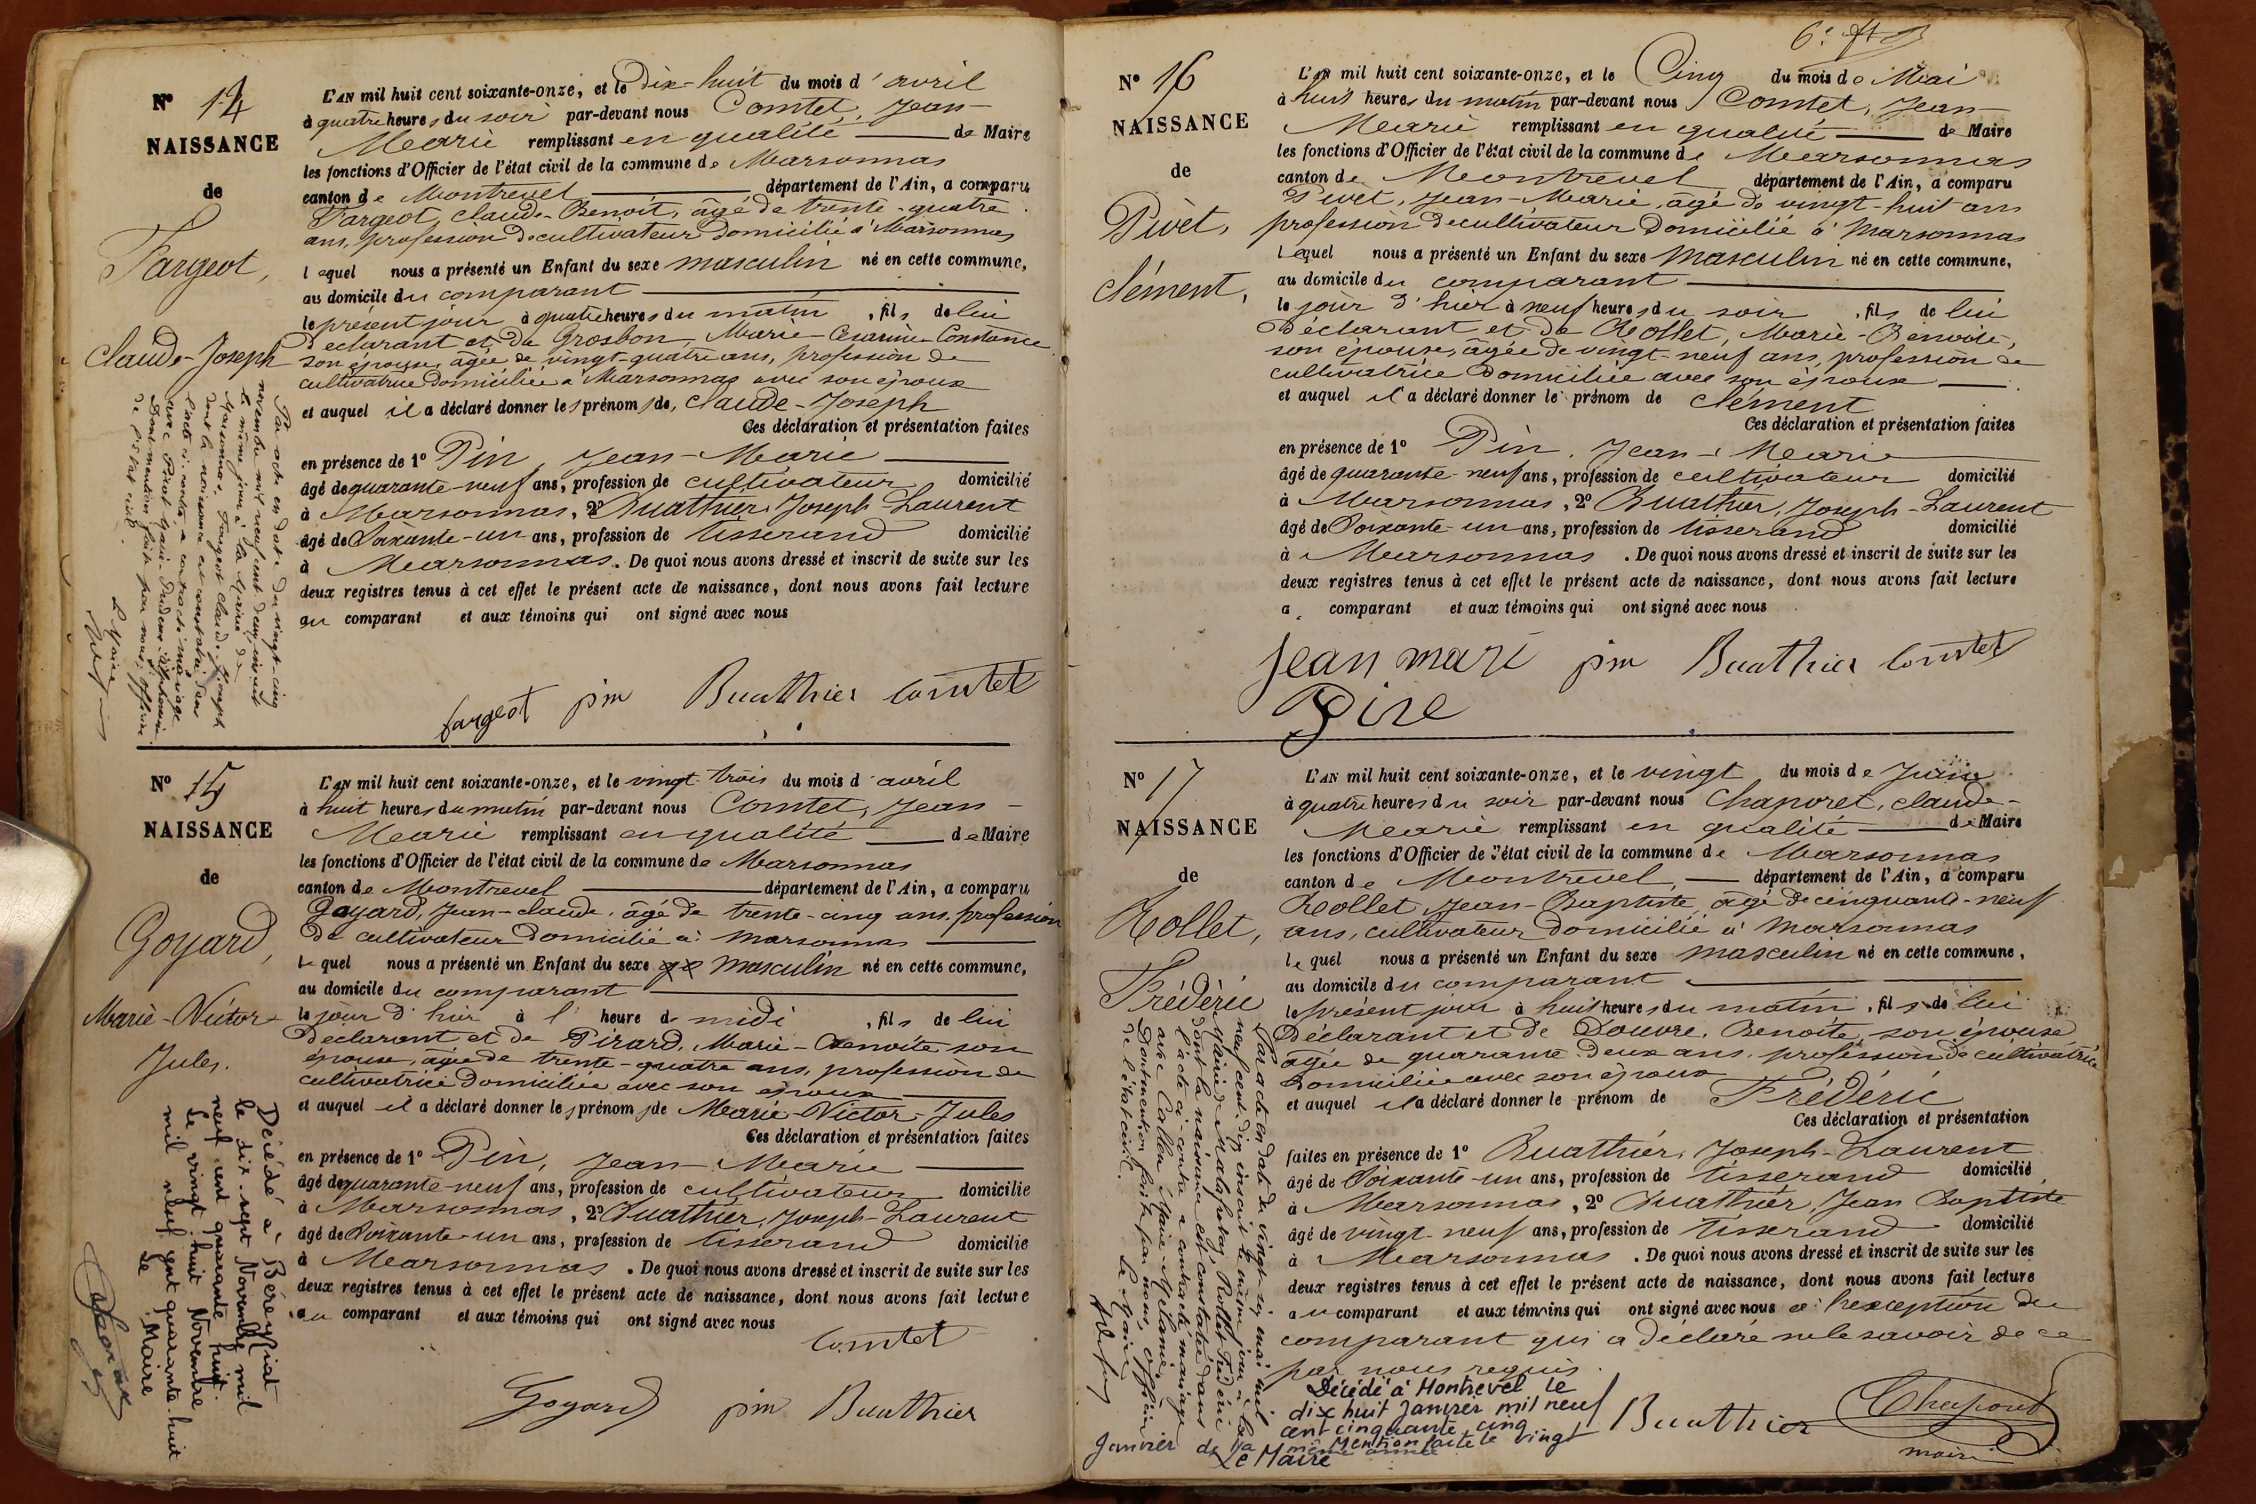 N° 14
NAISSANCE
de
Fargeot,
Claude-Joseph
L'AN mil huit cent soixante-onze, et le Dix-huit du mois d'avril
à quatre heures du soir par-devant nous Comtet, Jean-
Marie remplissant en qualité de Maire
les fonctions d'Officier de l'état civil de la commune de Marsonnas
canton de Montrevel département de l'Ain, a comparu
Fargeot, Claude-Benoît, âgé de trente-quatre
ans, profession de cultivateur domicilié à Marsonnas
lequel nous a présenté un Enfant du sexe masculin né en cette commune,
au domicile du comparant
le présent jour à quatre heures du matin, fils de lui
Déclarant et de Grosbon, Marie-Césarine-Constance
son épouse, âgée de vingt-quatre ans, profession de
cultivatrice domiciliée à Marsonnas avec son époux
et auquel il a déclaré donner les prénoms de, Claude-Joseph
Ces déclaration et présentation faites
en présence de 1° Pin, Jean-Marie
âgé de quarante-neuf ans, profession de cultivateur domicilié
à Marsonnas, 2° Buathier, Joseph-Laurent
âgé de Soixante-un ans, profession de tisserand domicilié
à Marsonnas. De quoi nous avons dressé et inscrit de suite sur les
deux registres tenus à cet effet le présent acte de naissance, dont nous avons fait lecture
au comparant et aux témoins qui ont signé avec nous
fargeot pin Buathier Comtet
Par acte en date du vingt-cinq
novembre mil neuf cent deux, inscrit
le même jour à la Mairie de
Marsonnas, Fargeot Claude Joseph
dont la naissance est constatée dans
l'acte ci-contre, a contracté mariage
avec
Dont mention faite par nous, officier
de l'état civil.
Le Maire
N° 15
NAISSANCE
de
Goyard,
Marie-Victor-
Jules.
L'AN mil huit cent soixante-onze, et le vingt-trois du mois d'avril
à huit heures du matin par-devant nous Comtet, Jean-
Marie remplissant en qualité de Maire
les fonctions d'Officier de l'état civil de la commune de Marsonnas
canton de Montrevel département de l'Ain, a comparu
Goyard, Jean-Claude, âgé de trente-cinq ans, profession
de cultivateur domicilié à Marsonnas
lequel nous a présenté un Enfant du sexe masculin né en cette commune,
au domicile du comparant
le jour d'hier à l'heure de midi, fils de lui
Déclarant et de Pirard, Marie-Benoite son
épouse, âgée de trente-quatre ans, profession de
cultivatrice domiciliée avec son époux
et auquel il a déclaré donner les prénoms de Marie-Victor-Jules
Ces déclaration et présentation faites
en présence de 1° Pin, Jean-Marie
âgé de quarante-neuf ans, profession de cultivateur domicilié
à Marsonnas, 2° Buathier, Joseph-Laurent
âgé de Soixante-un ans, profession de tisserand domicilié
à Marsonnas. De quoi nous avons dressé et inscrit de suite sur les
deux registres tenus à cet effet le présent acte de naissance, dont nous avons fait lecture
au comparant et aux témoins qui ont signé avec nous
Comtet
Goyard pin Buathier
Décédé à Béreyziat
le dix-sept Novembre mil
neuf cent quarante huit.
Le vingt huit Novembre
mil neuf cent quarante-huit
Le Maire
N° 16
NAISSANCE
de
Pivet,
Clément,
L'AN mil huit cent soixante-onze, et le Cinq du mois de Mai
à huit heures du matin par-devant nous Comtet, Jean-
Marie remplissant en qualité de Maire
les fonctions d'Officier de l'état civil de la commune de Marsonnas
canton de Montrevel département de l'Ain, a comparu
Pivet, Jean-Marie, âgé de vingt-huit ans
profession de cultivateur domicilié à Marsonnas
Lequel nous a présenté un Enfant du sexe masculin né en cette commune,
au domicile du comparant
le jour d'hier à neuf heures du soir, fils de lui
Déclarant et de Rollet, Marie-Benoite,
son épouse, âgée de vingt-neuf ans, profession de
cultivatrice domiciliée avec son époux
et auquel il a déclaré donner le prénom de Clément
Ces déclaration et présentation faites
en présence de 1° Pin, Jean-Marie
âgé de quarante-neuf ans, profession de cultivateur domicilié
à Marsonnas, 2° Buathier, Joseph-Laurent
âgé de Soixante-un ans, profession de tisserand domicilié
à Marsonnas. De quoi nous avons dressé et inscrit de suite sur les
deux registres tenus à cet effet le présent acte de naissance, dont nous avons fait lecture
a comparant et aux témoins qui ont signé avec nous
Jean mari pin Buathier Comtet
N° 17
NAISSANCE
de
Rollet,
Frédéric
L'AN mil huit cent soixante-onze, et le vingt du mois de Juin
à quatre heures du soir par-devant nous Chaporet, Claude-
Marie remplissant en qualité de Maire
les fonctions d'Officier de l'état civil de la commune de Marsonnas
canton de Montrevel, département de l'Ain, a comparu
Rollet, Jean-Baptiste, âgé de cinquante-neuf
ans, cultivateur domicilié à Marsonnas
lequel nous a présenté un Enfant du sexe masculin né en cette commune,
au domicile du comparant
le présent jour à huit heures du matin, fils de lui
Déclarant et de Douvre, Benoite, son épouse
âgée de quarante-deux ans, profession de cultivatrice
domiciliée avec son époux
et auquel il a déclaré donner le prénom de Frédéric
Ces déclaration et présentation
faites en présence de 1° Buathier, Joseph-Laurent
âgé de Soixante-un ans, profession de tisserand domicilié
à Marsonnas, 2° Buathier, Jean Baptiste
âgé de vingt-neuf ans, profession de tisserand domicilié
à Marsonnas. De quoi nous avons dressé et inscrit de suite sur les
deux registres tenus à cet effet le présent acte de naissance, dont nous avons fait lecture
au comparant et aux témoins qui ont signé avec nous à l'exception du
comparant qui a déclaré ne le savoir de ce
par nous requis.
Buathier
maire
Par acte en date du vingt-six mai mil
neuf cent dix inscrit le même jour à la
Mairie de Malafretaz, Rollet Frédéric
dont la naissance est constatée dans
l'acte ci-contre a contracté mariage
avec Marie-Mélanie.
Dont mention faite par nous, officier
de l'état civil.
Le Maire
Décédé à Montrevel le
dix huit Janvier mil neuf
cent cinquante cinq
Mention faite le vingt
Janvier de la même année
Le Maire